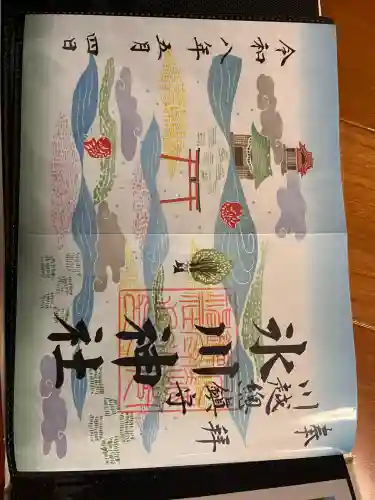 奉拝
川越總鎮守
氷川神社
令和八年五月四日